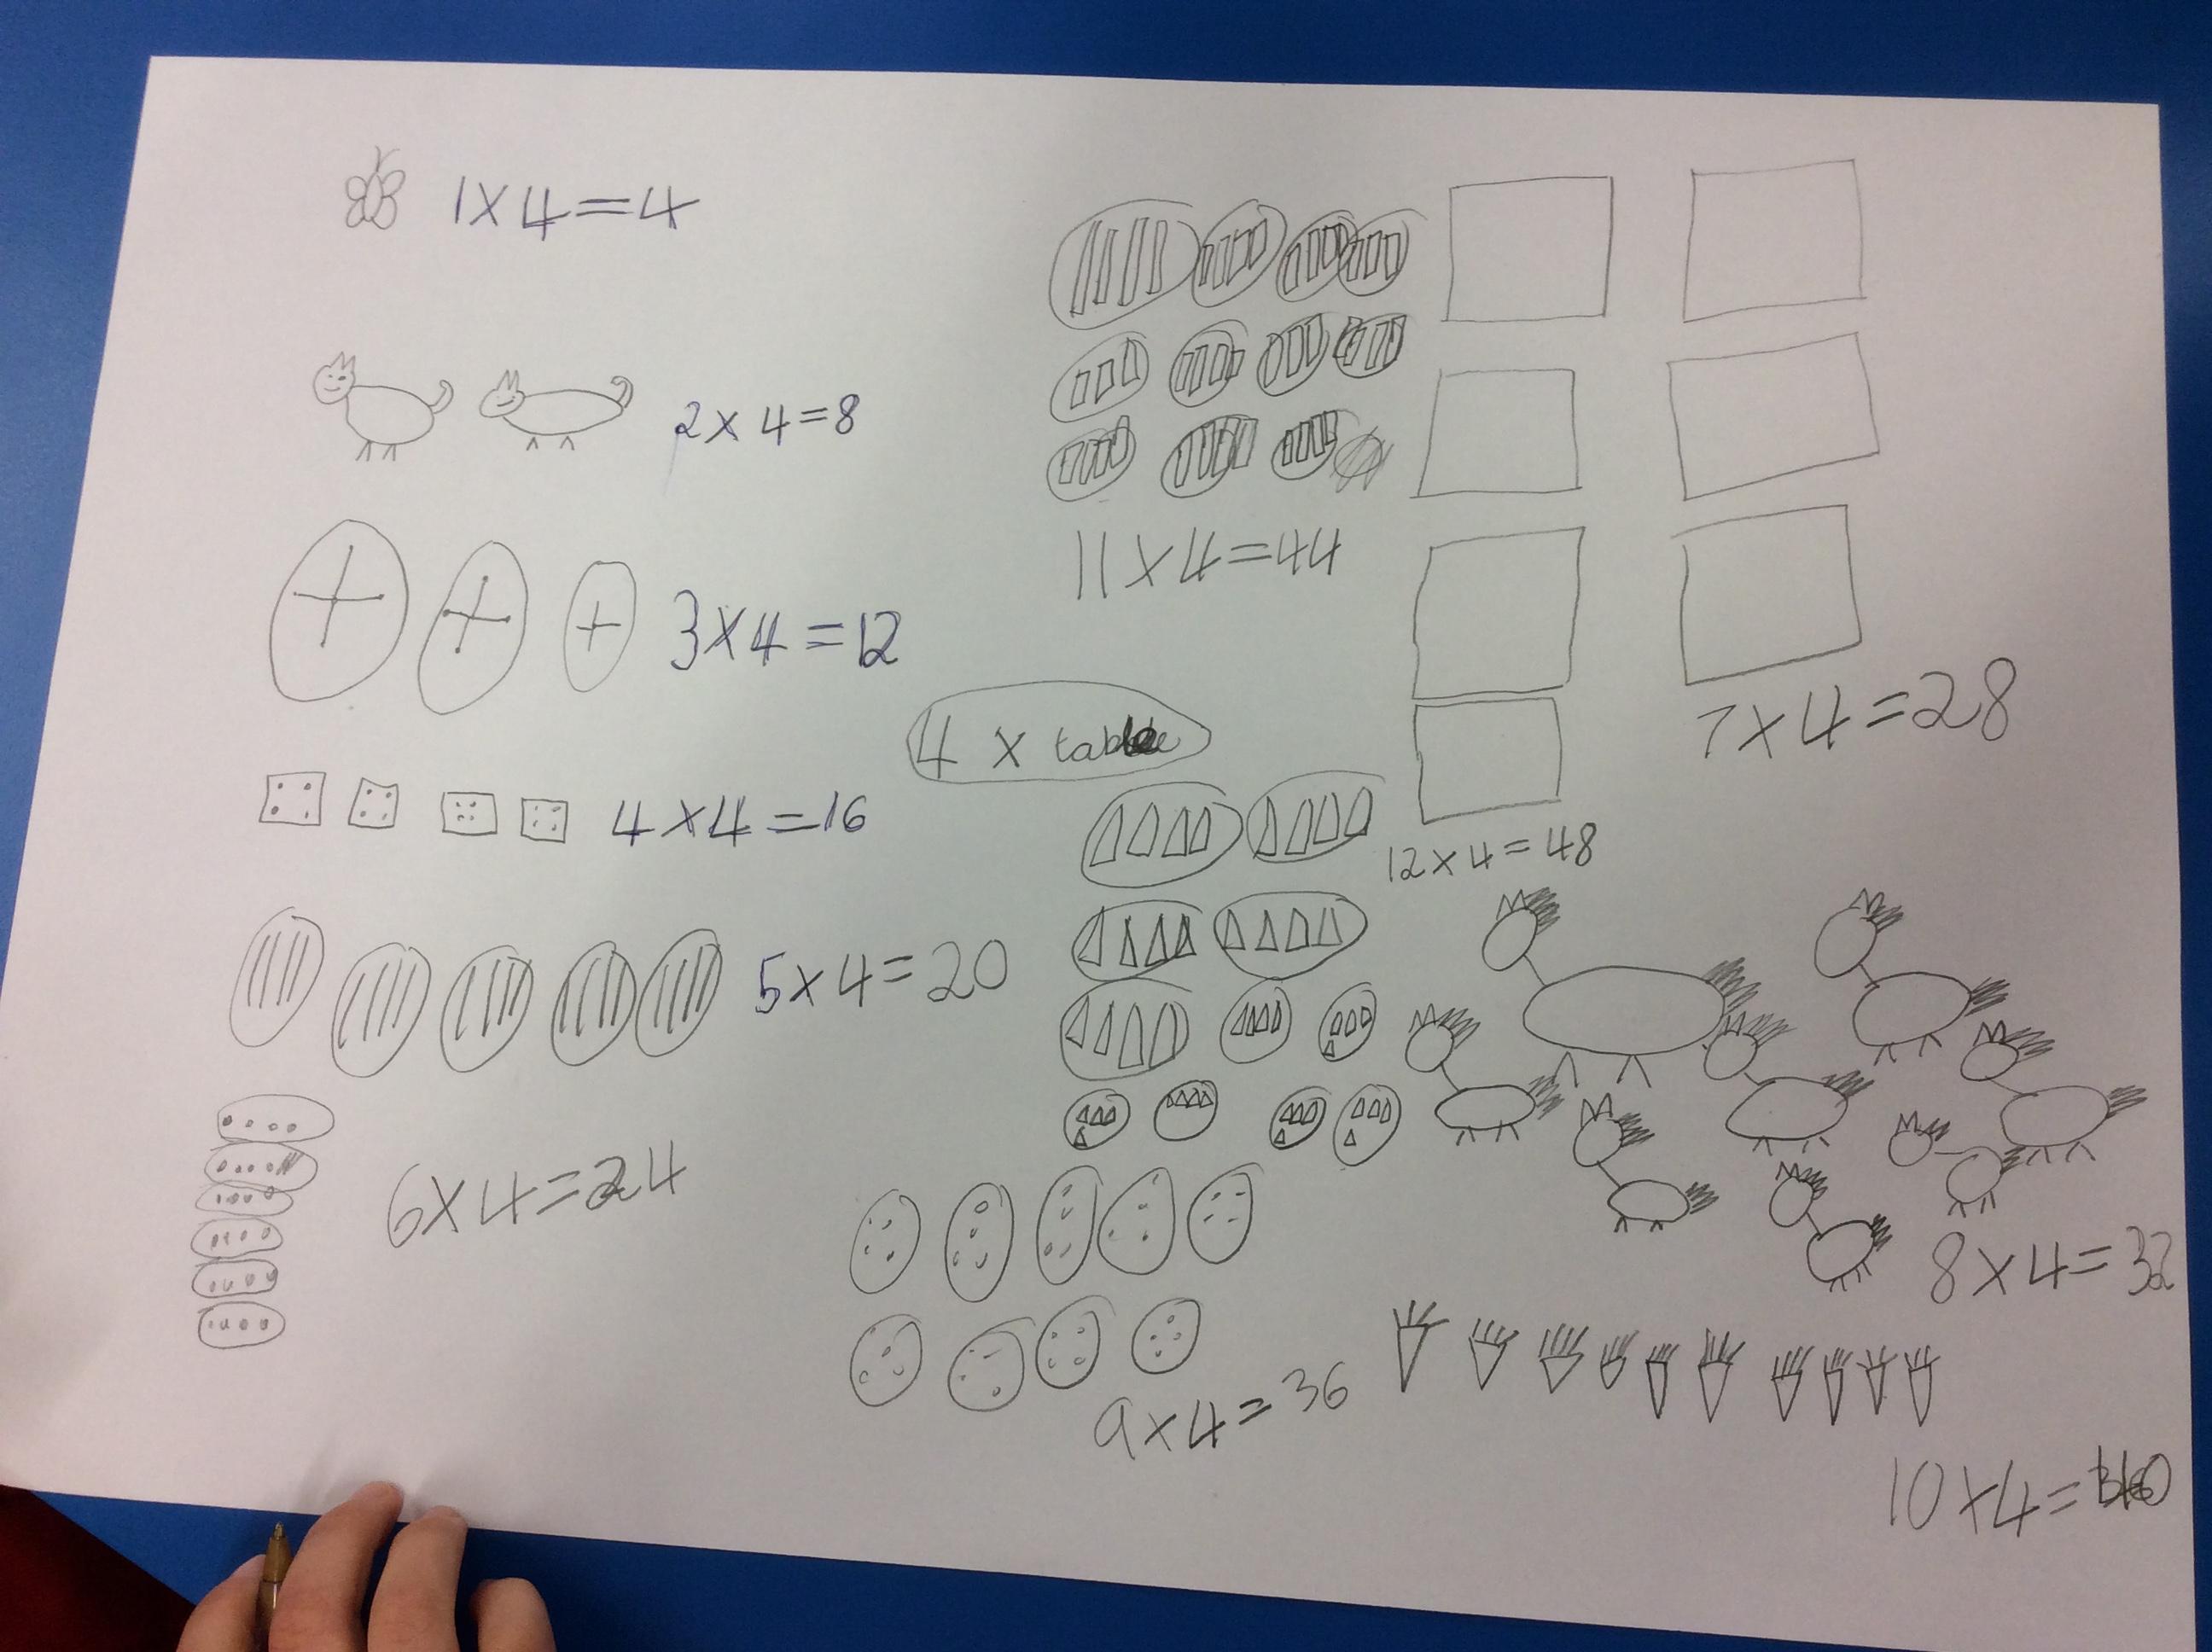 1 x 4 = 4
2 x 4 = 8
3 x 4 = 12
4 x 4 = 16
5 x 4 = 20
6 x 4 = 24
11 x 4 = 44
4 x table
7 x 4 = 28
12 x 4 = 48
8 x 4 = 32
9 x 4 = 36
10 x 4 = 40